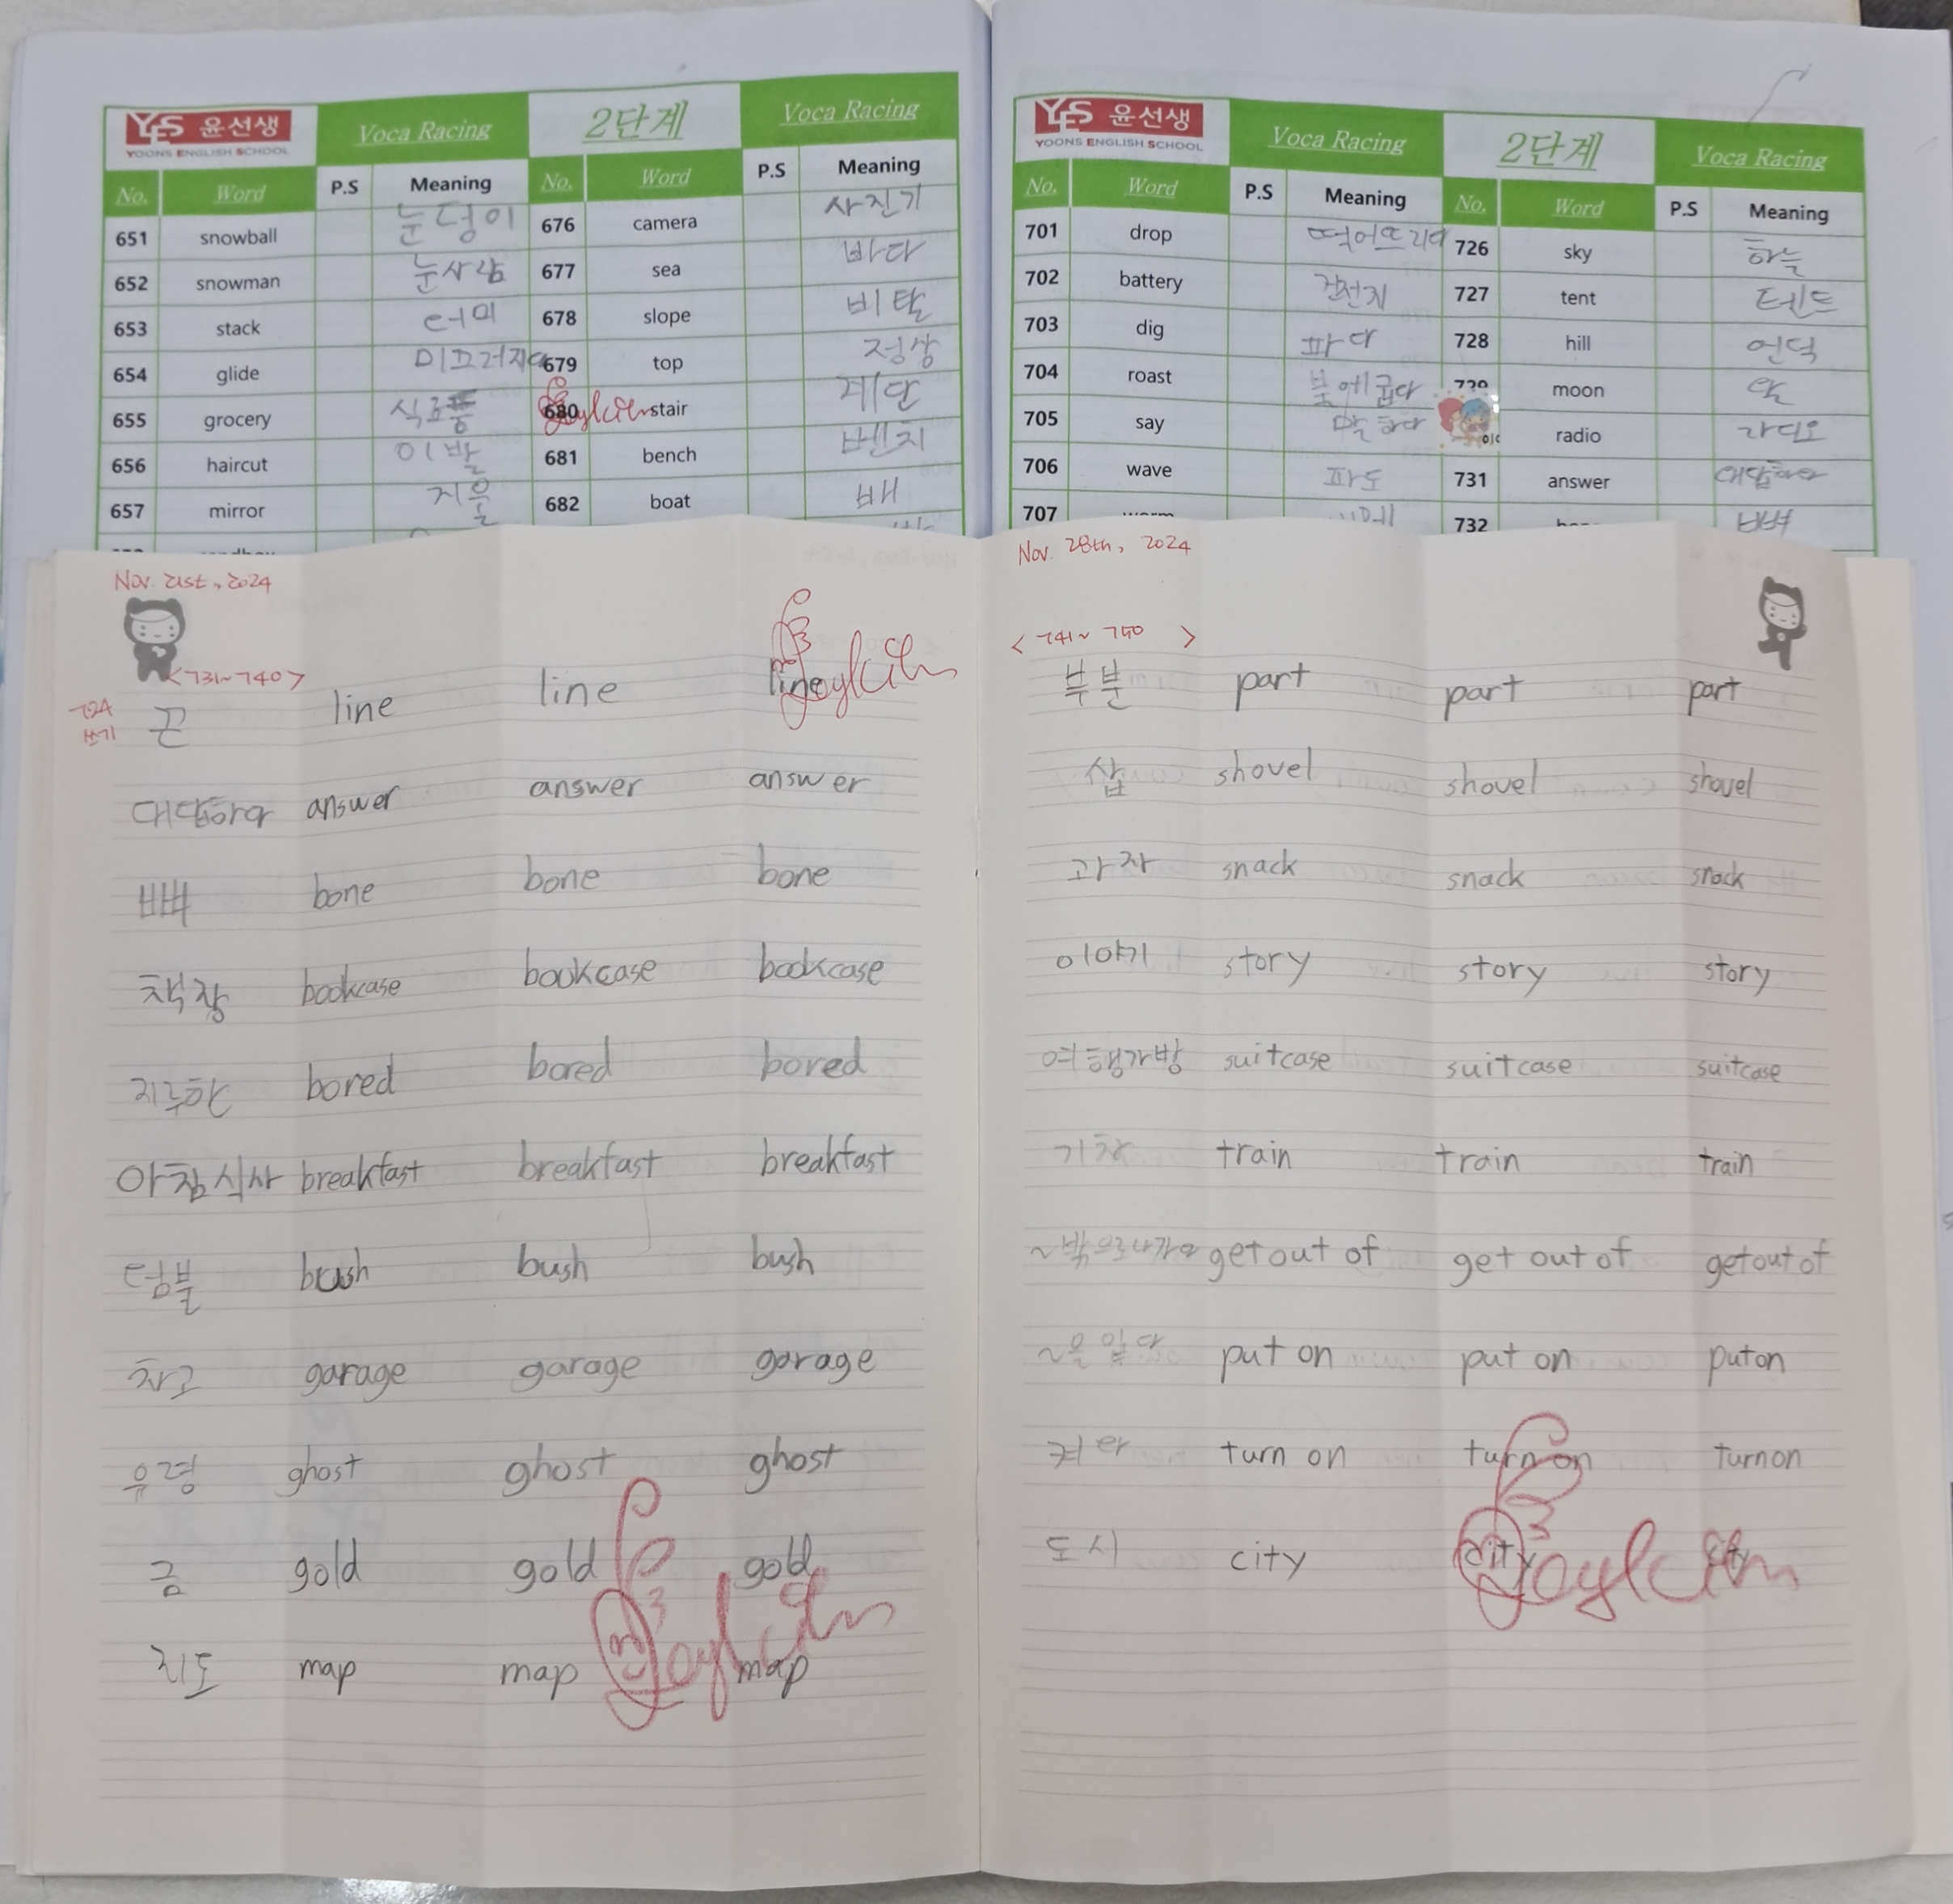 YES 윤선생 Voca Racing 2단계 Voca Racing
YOONS ENGLISH SCHOOL
No. Word P.S Meaning No. Word P.S Meaning
651 snowball 눈덩이 676 camera 사진기
652 snowman 눈사람 677 sea 바다
653 stack 더미 678 slope 비탈
654 glide 미끄러지다 679 top 정상
655 grocery 식료품 680 stair 계단
656 haircut 이발 681 bench 벤치
657 mirror 682 boat 배
YES 윤선생 Voca Racing 2단계 Voca Racing
YOONS ENGLISH SCHOOL
No. Word P.S Meaning No. Word P.S Meaning
701 drop 떨어뜨리다 726 sky 하늘
702 battery 건전지 727 tent 텐트
703 dig 파다 728 hill 언덕
704 roast 729 moon 달
705 say 말하다 radio 라디오
706 wave 파도 731 answer 대답하다
707 732 뼈
Nov. 21st, 2024
<731~740>
724
쓰기
끈 line line line
대답하다 answer answer answer
뼈 bone bone bone
책장 bookcase bookcase bookcase
지루한 bored bored bored
아침식사 breakfast breakfast breakfast
덤불 bush bush bush
차고 garage garage garage
유령 ghost ghost ghost
금 gold gold gold
지도 map map map
Nov. 28th, 2024
<741~750>
부분 part part part
삽 shovel shovel shovel
과자 snack snack snack
이야기 story story story
여행가방 suitcase suitcase suitcase
기차 train train train
~밖으로나가다 get out of get out of get out of
~을 입다 put on put on put on
켜다 turn on turn on turn on
도시 city city city